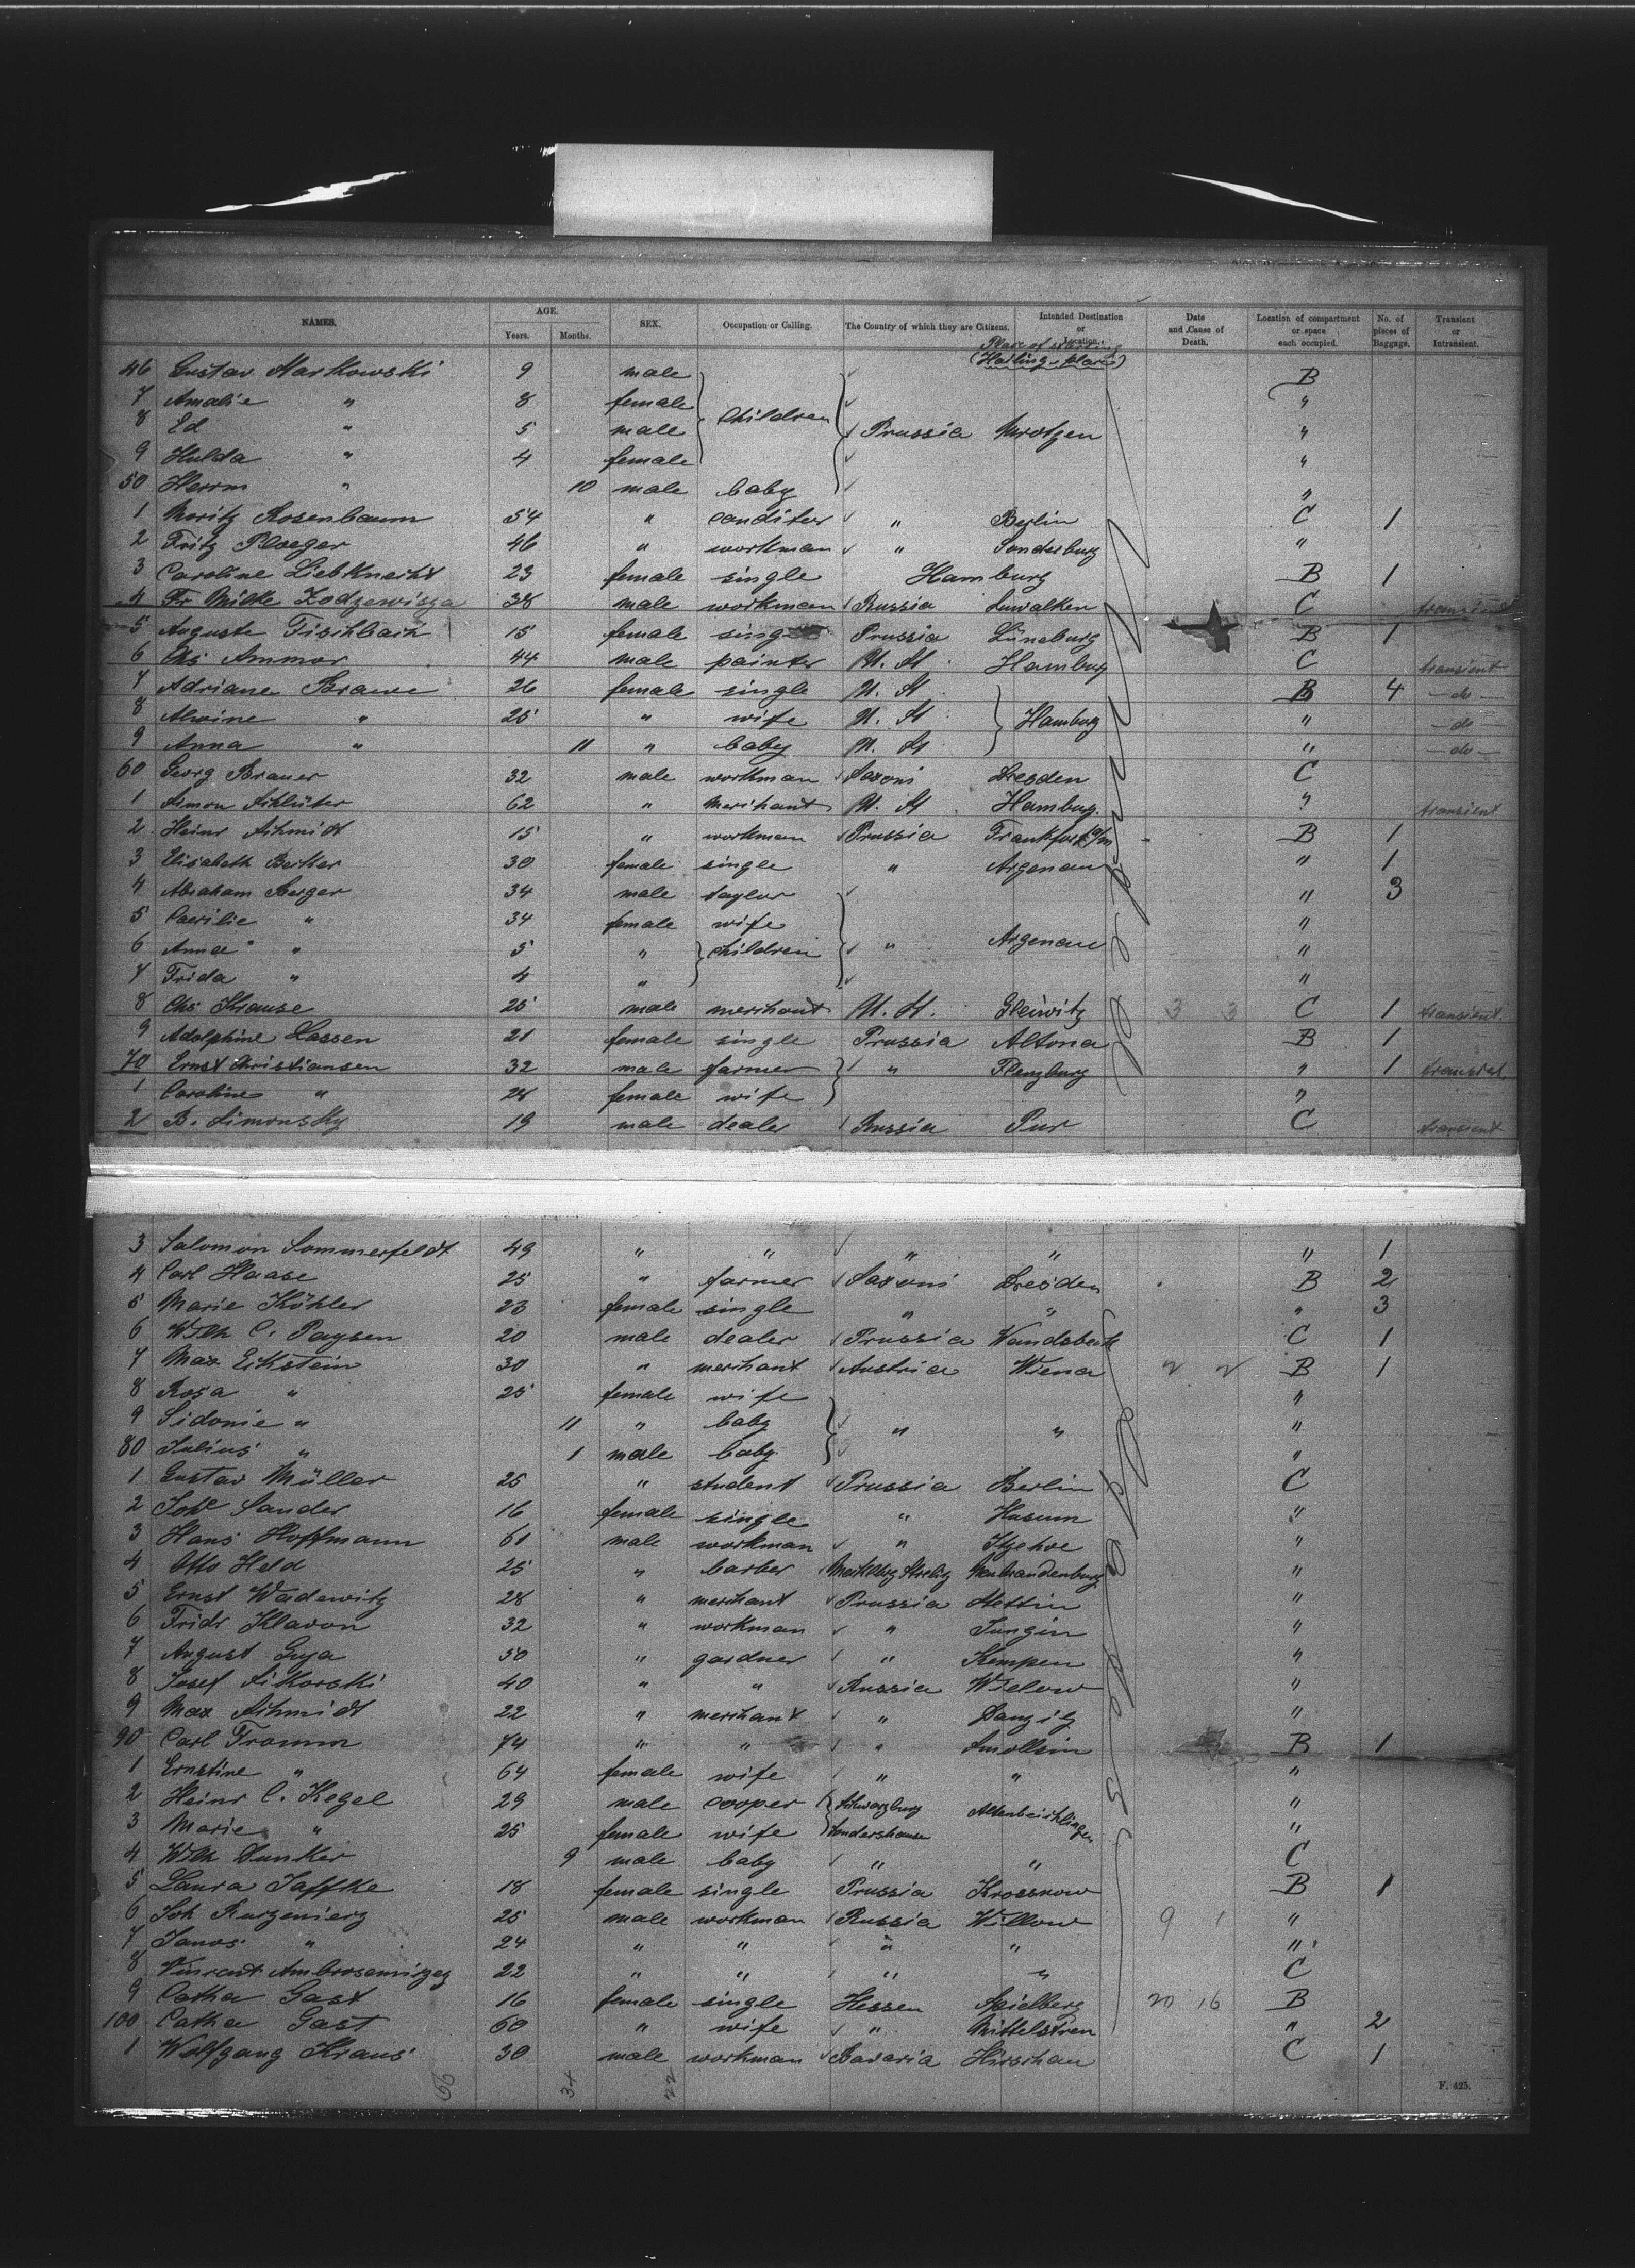 NAMES. AGE. Years. Months. SEX. Occupation or Calling. The Country of which they are Citizens. Intended Destination or Location. Date and Cause of Death. Location of compartment or space each occupied. No. of pieces of Baggage. Transient or Intransient.
Place of starting
46 Gustav Markowski 9 male B
7 Amalie " 8 female children "
8 Ed " 5 male Prussia Mrotzen "
9 Hulda " 4 female "
50 Herrm " 10 male baby "
1 Moritz Rosenbaum 54 " conditor " Berlin C 1
2 Fritz Ploeger 46 " workman " Sonderburg "
3 Caroline Liebknecht 23 female single Hamburg B 1
4 Fr Milke 38 male workman Russia Suwalken C transient
5 Auguste Fischbach 15 female single Prussia Lüneburg B 1
6 Chs Ammor 44 male painter U. St. Hamburg C transient
7 Adriane Brawe 26 female single U. St B 4 - do -
8 Alwine " 25 " wife U. St Hamburg " - do
9 Anna " 11 " baby U. St " - do -
60 Georg Brauer 32 male workman Saxoni Dresden C
1 Simon Schlüter 62 " merchant U. St Hamburg. " transient
2 Heinr Schmidt 15 " workman Prussia Frankfort a/m B 1
3 Elisabeth Becker 30 female single " Argenau " 1
4 Abraham Berger 34 male taylor " 3
5 Caecilie " 34 female wife "
6 Anna " 5 " children " Argenau "
7 Frida " 4 " "
8 Chs Krause 25 male merchant U. St. Gleiwitz 3 3 C 1 transient.
9 Adolphine Lassen 21 female single Prussia Altona B 1
70 Ernst Christiansen 32 male farmer " Flensburg " 1
1 Caroline " 28 female wife "
2 B. Simonsky 19 male dealer Russia Pur C transient
3 Salomon Sommerfeldt 49 " " " " " 1
4 Carl Haase 25 " farmer Saxoni Dresden B 2
5 Marie Köhler 23 female single " " " 3
6 Wilh C. Paysen 20 male dealer Prussia Wandsbeck C 1
7 Max Eckstein 30 " merchant Austria Wiena 2 2 B 1
8 Rosa " 25 female wife "
9 Sidonie " 11 " baby " " "
80 Julius " 1 male baby "
1 Gustav Müller 25 " student Prussia Berlin C
2 Johe Sander 16 female single " Husum "
3 Hans Hoffmann 61 male workman " Itzehoe "
4 Otto Held 25 " barber Mecklbrg Strelitz Neubrandenburg "
5 Ernst Wadewitz 28 " merchant Prussia Stettin "
6 Fridr Klavon 32 " workman " "
7 August Guja 50 " gardner " Kempen "
8 Josef Sikorski 40 " " Russia Wielow "
9 Max Schmidt 22 " merchant " Danzig "
90 Carl Fromm 74 " " " Smollsin B 1
1 Ernstine " 64 female wife " " "
2 Heinr C. Kegel 29 male cooper Schwarzburg Altenbeichlingen "
3 Marie " 25 female wife Sondershause "
4 Wilh Dunker 9 male baby " " C
5 Laura Jaffke 18 female single Prussia Krossnow B 1
6 Joh Kurzenierz 25 male workman Russia Willow 9 1 "
7 Janos " 24 " " " " "
8 Vincent 22 " " " " C
9 Catha Gast 16 female single Hessen Spielberg 20 16 B
100 Catha Gast 60 " wife " " 2
1 Wolfgang Kraus 30 male workman Bavaria Hirschau C 1
66 34 22
F. 425.